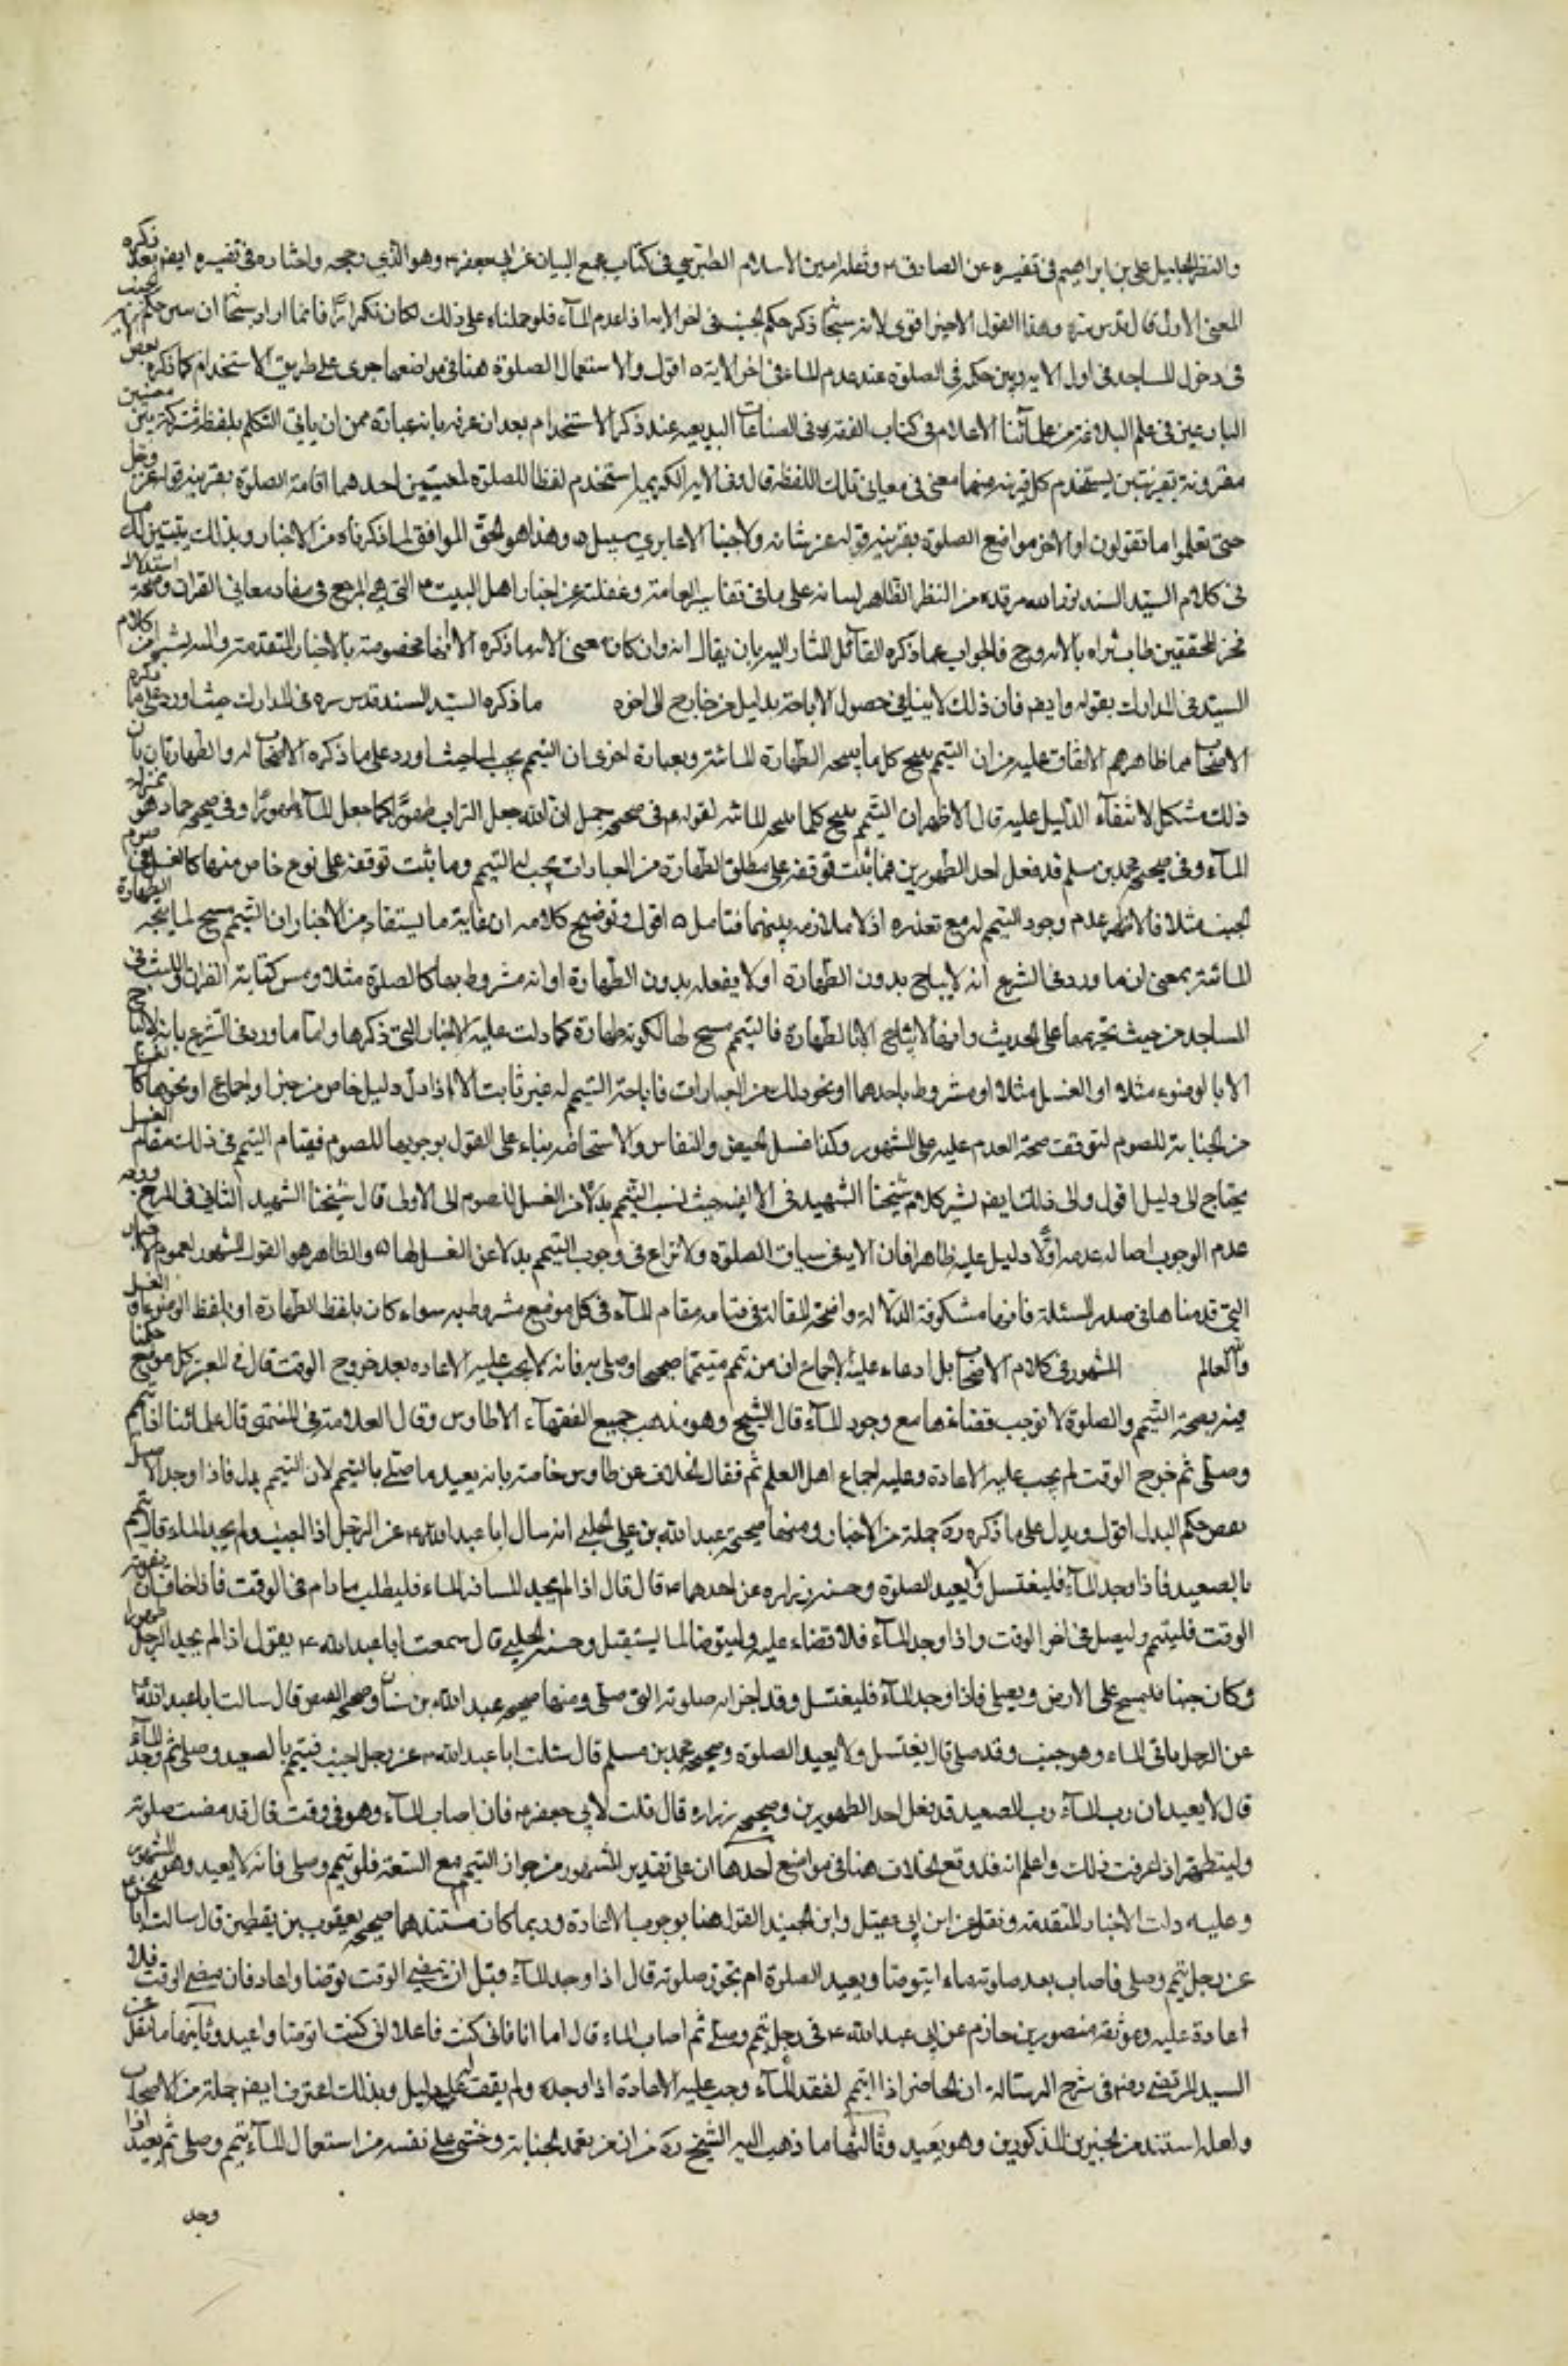 والثقة الجليل علي بن ابراهيم في تفسيره عن الصادق ع ونقله امين الاسلام الطبرسي في كتاب مجمع البيان عن ابي جعفر ع وهو الذي رجحه واختاره في تفسيره ايضا بعد ذكره
المعنى الاول قال قدس سره وهذا القول الاخير اقوى لانه سبحانه ذكر حكم الجنب في اخر الاية اذا عدم المآء فلو حملناه على ذلك لكان تكرارا فانما اراد سبحانه ان يبين حكم الجنب
في دخول المساجد في اول الاية ويبين حكمه في الصلوة عند عدم الماء في اخر الاية ه اقول والاستعمال الصلوة هنا في مواضعها جرى على طريق الاستخدام كما ذكره بعض
البارعين في علم البلاغة من علمآئنا الاعلام في كتاب الفه في الصناعات البديعيه عند ذكر الاستخدام بعد ان عرفه بانه عبارة من ان ياتي المتكلم بلفظة مشتركة بين معنيين
مقرونة بقرينتين يستخدم كل قرينة منهما معنى من معاني تلك اللفظة قال وفي الاية الكريمة استخدم لفظ الصلوة لمعنيين احدهما اقامة الصلوة بقرينة قوله عز وجل
حتى تعلموا ما تقولون والاخر مواضع الصلوة بقرينة قوله عز شانه ولا جنبا الا عابري سبيل ه وهذا هو الحق الموافق لما ذكرناه من الاخبار وبذلك يتبين لك ما
في كلام السيد السند نور الله مرقده من النظر الظاهر لبنائه على ما في تفاسير العامة وغفلته عن اخبار اهل البيت ع التي هي المرجع في مفاد معاني القران وصحة استدلال
فخر المحققين طاب ثراه بالاية وح فالجواب عما ذكره القائل المشار اليه بان يقال انه وان كان معنى الاية ما ذكره الا انها مخصوصة بالاخبار المتقدمة واليه يشير كلام
السيد في المدارك بقوله وايضا فان ذلك لا ينافي حصول الاباحة بدليل من خارج الى اخره ما ذكره السيد السند قدس سره في المدارك حيث اورد على ما ذكره
الاصحاب مما ظاهرهم الاتفاق عليه من ان التيمم يبيح كل ما يبيحه الطهارة المائية وبعبارة اخرى ان التيمم يجب لما حيث اورد على ما ذكره الاصحاب له والطهارتان بان
ذلك مشكل لانتفآء الدليل عليه قال الاظهر ان التيمم يبيح كلما يبيحه المائية لقوله ع في صحيحة جميل ان الله جعل التراب طهورا كما جعل المآء طهورا وفي صحيحة حماد هو بمنزلة
المآء وفي صحيحة محمد بن مسلم قد فعل احد الطهورين فما ثبت توقفه على مطلق الطهارة من العبادات يجب له التيمم وما ثبت توقفه على نوع خاص منها كالغسل في صوم
الجنب مثلا فالاظهر عدم وجوب التيمم له مع تعذره اذ لا ملازمة بينهما فتامل ه اقول وتوضيح كلامه ان غاية ما يستفاد من الاخبار ان التيمم مبيح لما يبيحه الطهارة
المائية بمعنى ان ما ورد في الشرع انه لا يباح بدون الطهارة او لا يفعله بدون الطهارة او انه مشروط بها كالصلوة مثلا ومس كتابة القران واللبث في
المساجد من حيث تحريمها على المحدث وانها لا يباح الا بالطهارة فالتيمم مبيح لها لكونه طهارة كما دلت عليه الاخبار التي ذكرها واما ما ورد في الشرع بانه لا يباح
الا بالوضوء مثلا او الغسل مثلا او مشروط باحدهما او نحو ذلك من العبارات فاباحة التيمم له غير ثابت الا اذا دل دليل خاص من خبر او اجماع او نحوهما كالغسل
من الجنابة للصوم لتوقف صحة الصوم عليه على المشهور وكذا غسل الحيض والنفاس والاستحاضة بناء على القول بوجوبها للصوم فقيام التيمم في ذلك مقام الغسل
يحتاج الى دليل اقول والى ذلك ايضا يشير كلام شيخنا الشهيد في الالفية حيث نسب التيمم بدلا من الغسل للصوم الى الاولى قال شيخنا الشهيد الثاني في الشرح ووجه
عدم الوجوب اصالة عدمه اولا دليل عليه ظاهرا فان الاية في سياق الصلوة ولا نزاع في وجوب التيمم بدلا عن الغسل لها ه والظاهر هو القول المشهور لعموم الاخبار
التي قدمناها في صدر المسئلة فانها مشكوفة الدلالة واضحة المقالة في قيامه مقام المآء في كل موضع مشروط به سواء كان بلفظ الطهارة او بلفظ الوضوء او الغسل
والله العالم المشهور في كلام الاصحاب بل ادعاء عليه الاجماع ان من تيمم تيمما صحيحا وصلى به فانه لا يجب عليه الاعادة بعد خروج الوقت قال في المعتبر كل موضع حكمنا
فيه بصحة التيمم والصلوة لا توجب قضاءها مع وجود المآء قال الشيخ وهو مذهب جميع الفقهآء الا طاوس وقال العلامة في المنتهى قال علمائنا اذا تيمم
وصلى ثم خرج الوقت لم يجب عليه الاعادة وعليه اجماع اهل العلم ثم نقل الخلاف عن طاوس خاصة بانه يعيد ما صلى بالتيمم لان التيمم بدل فاذا وجد الاصل
نقض حكم البدل اقول ويدل على ما ذكره ره جملة من الاخبار ومنها صحيحة عبد الله بن علي الحلبي انه سال ابا عبد الله ع عن الرجل اذا اجنب ولم يجد الماء قال يتيمم
بالصعيد فاذا وجد المآء فليغتسل ولا يعيد الصلوة وحسنة زراره عن احدهما ع قال قال اذا لم يجد المسافر الماء فليطلب ما دام في الوقت فاذا خاف ان يفوته
الوقت فليتيمم وليصل في اخر الوقت واذا وجد المآء فلا قضاء عليه وليتوضا لما يستقبل وحسنة الحلبي قال سمعت ابا عبد الله ع يقول اذا لم يجد الرجل طهورا
وكان جنبا فليمسح على الارض ويصلي فاذا وجد المآء فليغتسل وقد اجزاته صلوته التي صلى ومنها صحيحة عبد الله بن سنان وصحيحة العيص قال سالت ابا عبد الله ع
عن الرجل ياتي الماء وهو جنب وقد صلى قال يغتسل ولا يعيد الصلوة وصحيحة محمد بن مسلم قال سئلت ابا عبد الله ع عن رجل اجنب فتيمم بالصعيد وصلى ثم وجد المآء
قال لا يعيد ان رب المآء رب الصعيد قد فعل احد الطهورين وصحيحة زراره قال قلت لابي جعفر ع فان اصاب المآء وهو في وقت قال قد مضت صلوته
وليتطهر اذا عرفت ذلك واعلم انه قد وقع الخلاف هنا في مواضع احدها ان على تقدير المشهور من جواز التيمم مع السعة فلو تيمم وصلى فانه لا يعيد وهو المشهور
وعليه دلت الاخبار المتقدمة ونقل عن ابن ابي عقيل وابن الجنيد القول هنا بوجوب الاعادة وربما كان مستندهما صحيحة يعقوب بن يقطين قال سالت ابا الحسن ع
عن رجل تيمم وصلى فاصاب بعد صلوته ماء ايتوضا ويعيد الصلوة ام تجوز صلوته قال اذا وجد المآء قبل ان يمضي الوقت توضا واعاد فان مضى الوقت فلا
اعادة عليه وموثقة منصور بن حازم عن ابي عبد الله ع في رجل تيمم وصلى ثم اصاب الماء قال اما انا فاني كنت فاعلا اني كنت اتوضا واعيد وثانيها ما نقل عن
السيد المرتضى رضه في شرح الرسالة ان الحاضر اذا تيمم لفقد المآء وجب عليه الاعادة اذا وجده ولم يقف له على دليل وبذلك اعترف ايضا جملة من الاصحاب
ولعله استند من الخبرين المذكورين وهو بعيد وثالثها ما ذهب اليه الشيخ ره من ان من تعمد الجنابة وخشى على نفسه من استعمال المآء تيمم وصلى ثم يعيد اذا
وجد